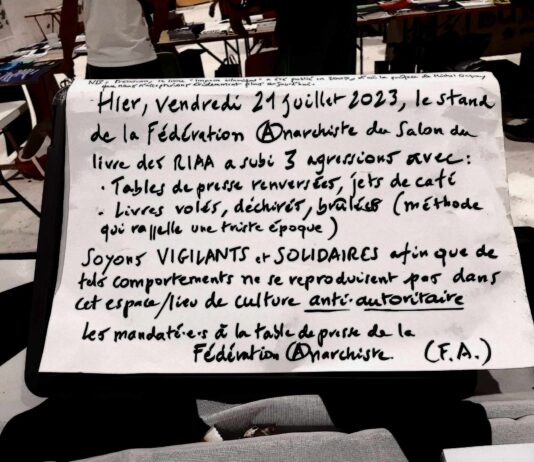 Hier, vendredi 21 juillet 2023, le stand
de la Fédération Anarchiste du Salon du
livre des RIAA a subi 3 agressions avec :
• Tables de presse renversées, jets de café
• Livres volés, déchirés, brûlés (méthode
qui rappelle une triste époque)
Soyons VIGILANTS et SOLIDAIRES afin que de
tels comportements ne se reproduisent pas dans
cet espace/lieu de culture anti-autoritaire
Les mandaté·e·s à la table de presse de la
Fédération Anarchiste. (F.A.)